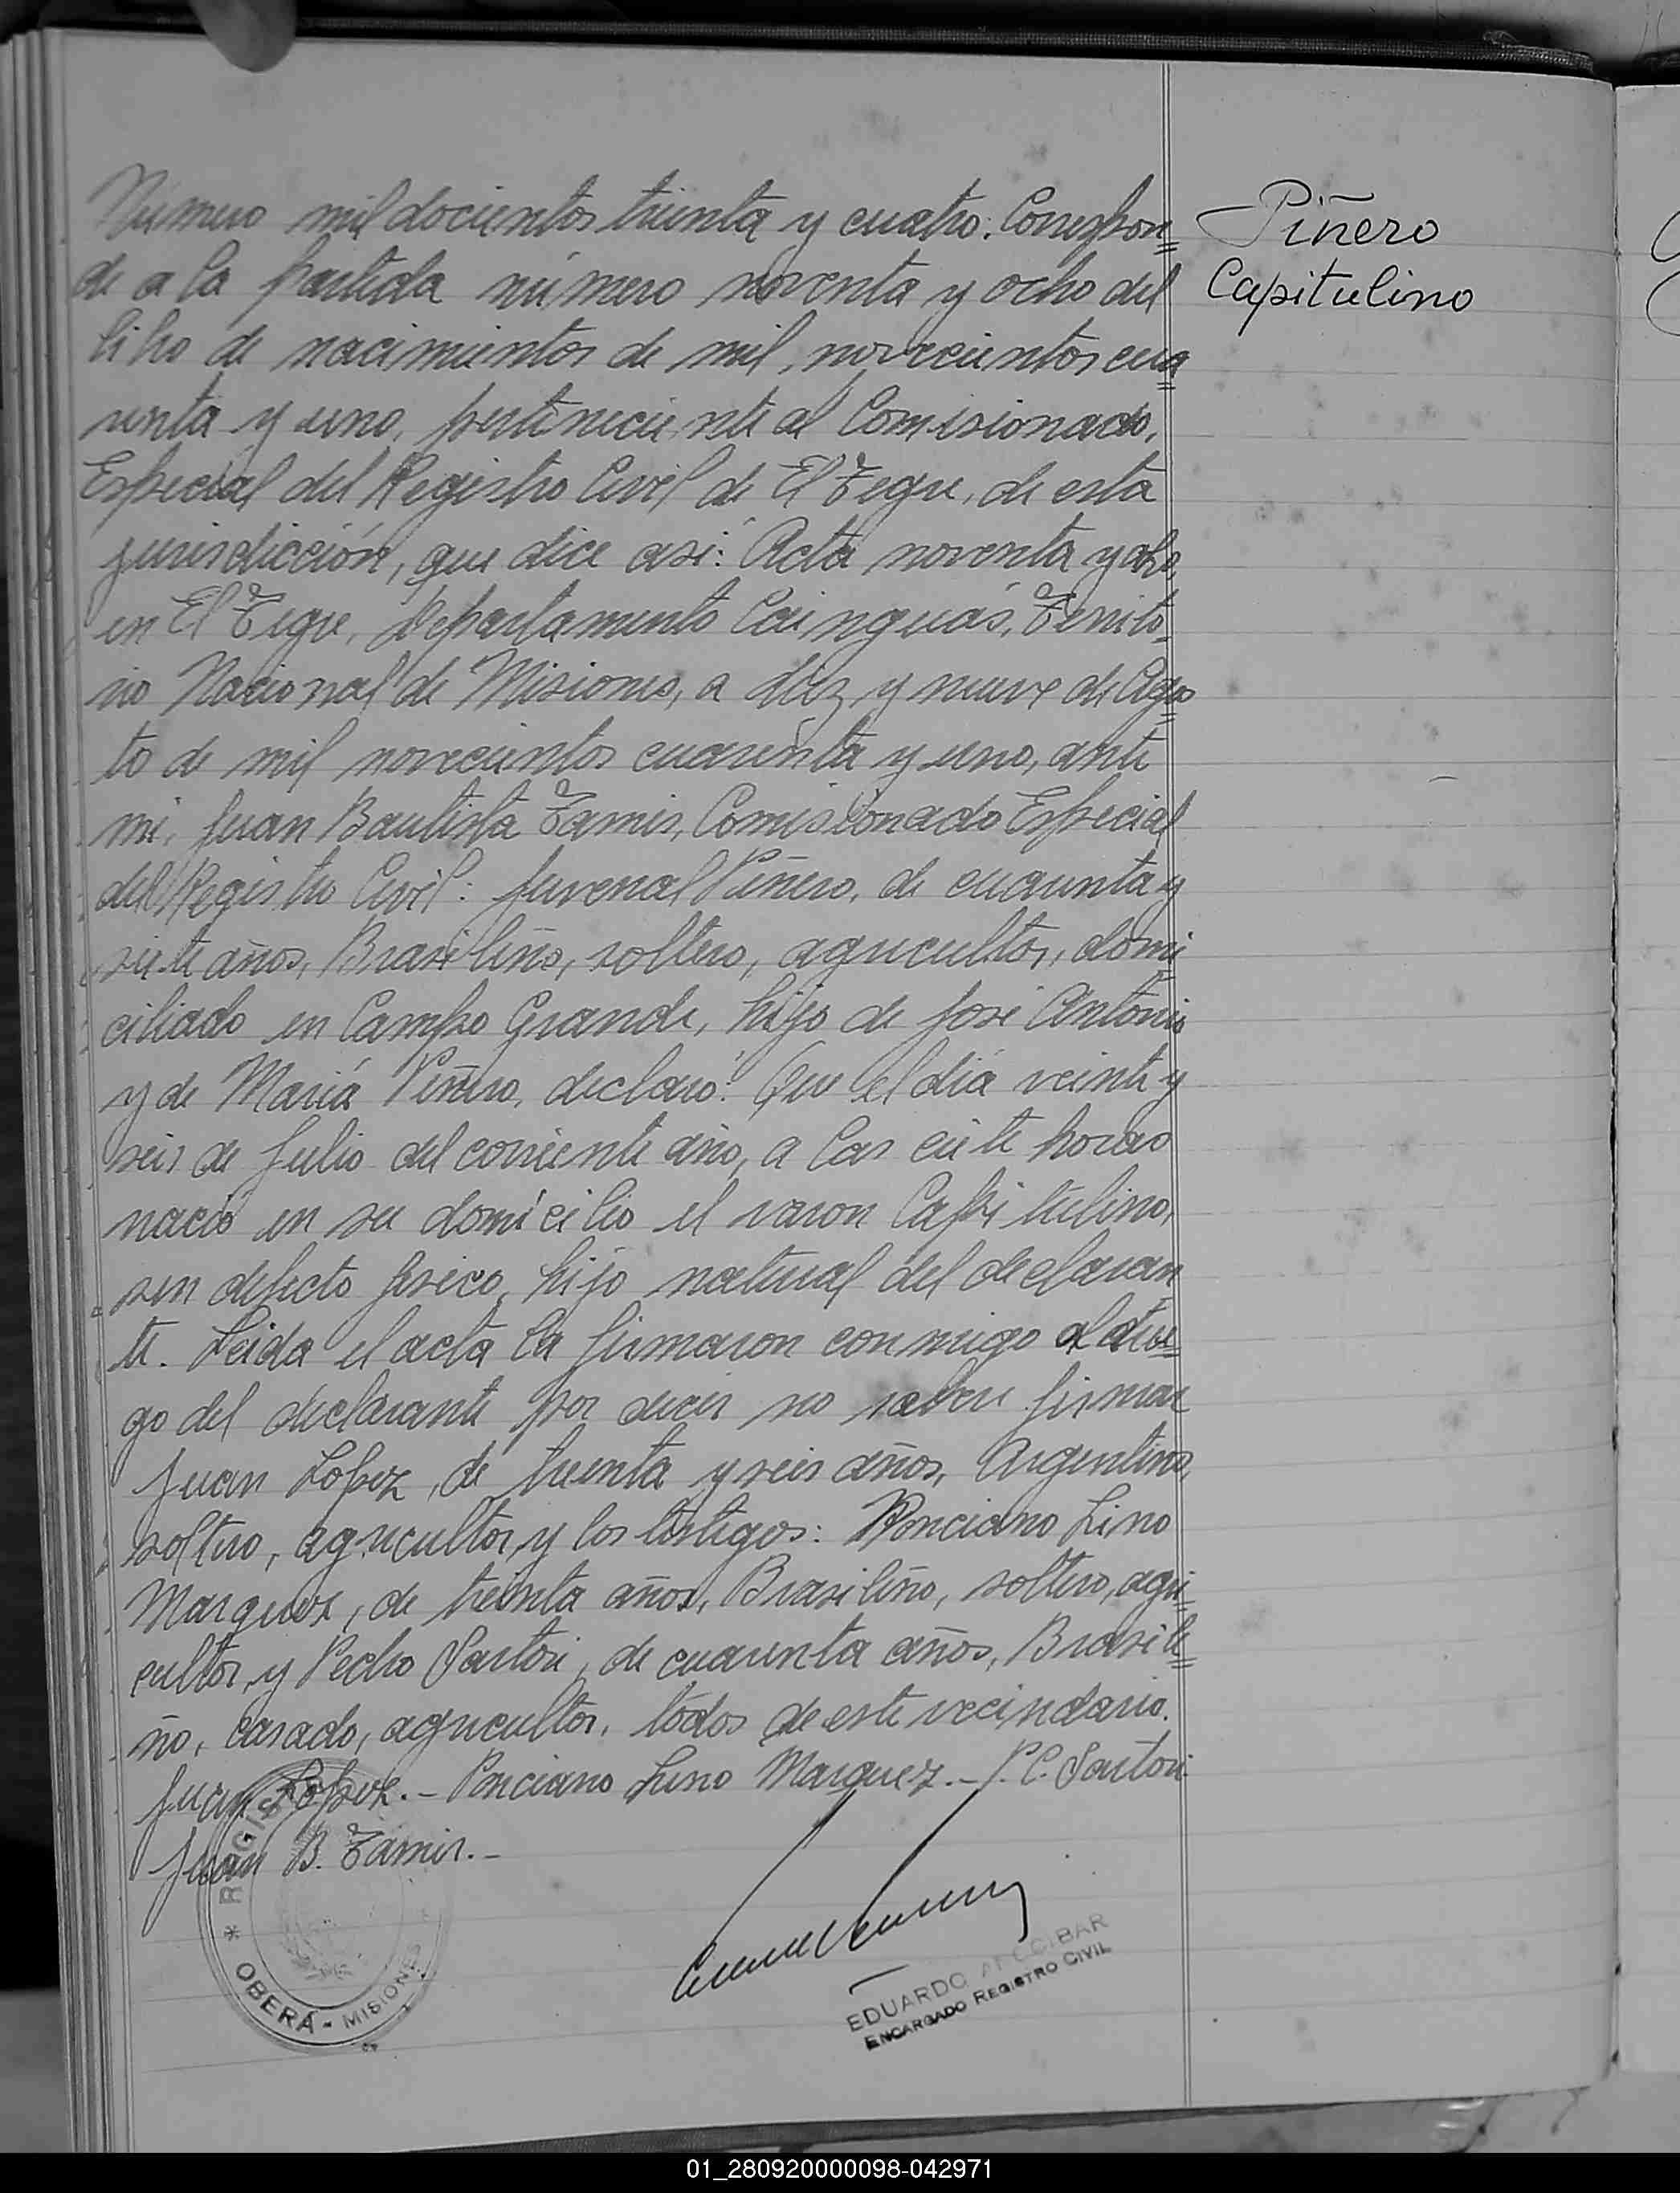 Piñero
Capitulino
Número mil docientos treinta y cuatro: Correspon=
de a la partida número noventa y ocho del
libro de nacimientos de mil novecientos cua=
renta y uno, perteneciente al Comisionado,
Especial del Registro Civil de El Tigre, de esta
jurisdicción, que dice asi: Acta noventa y ocho,
en El Tigre, Departamento Cainguás, Territo=
rio Nacional de Misiones, a diez y nueve de Agos=
to de mil novecientos cuarenta y uno, ante
mi, Juan Bautista Tamis, Comisionado Especial
del Registro Civil: Juvenal Piñero, de cuarenta y
siete años, Brasileño, soltero, agricultor, domi=
ciliado en Campo Grande, hijo de José Antonio
y de María Piñero, declaró: Que el día veinte y
seis de Julio del corriente año, a las ciete horas
nació en su domicilio el varon Capitulino,
sin defecto fisico, hijo natural del declaran=
te. Leida el acta la firmaron conmigo al
go del declarante por decir no saber firmar
Juan Lopez, de treinta y seis años, Argentino,
soltero, agricultor, y los testigos: Ponciano Lino
Marquez, de treinta años, Brasileño, soltero, agri=
cultor, y Pedro Sartori, de cuarenta años, Brasile=
ño, casado, agricultor, todos de este vecindario.
Juan Lopez.- Ponciano Lino Marquez.- P. C. Sartori
Juan B. Tamis.-
REGIS
* OBERÁ - MISIONES
EDUARDO
ENCARGADO REGISTRO CIVIL
01_280920000098-042971